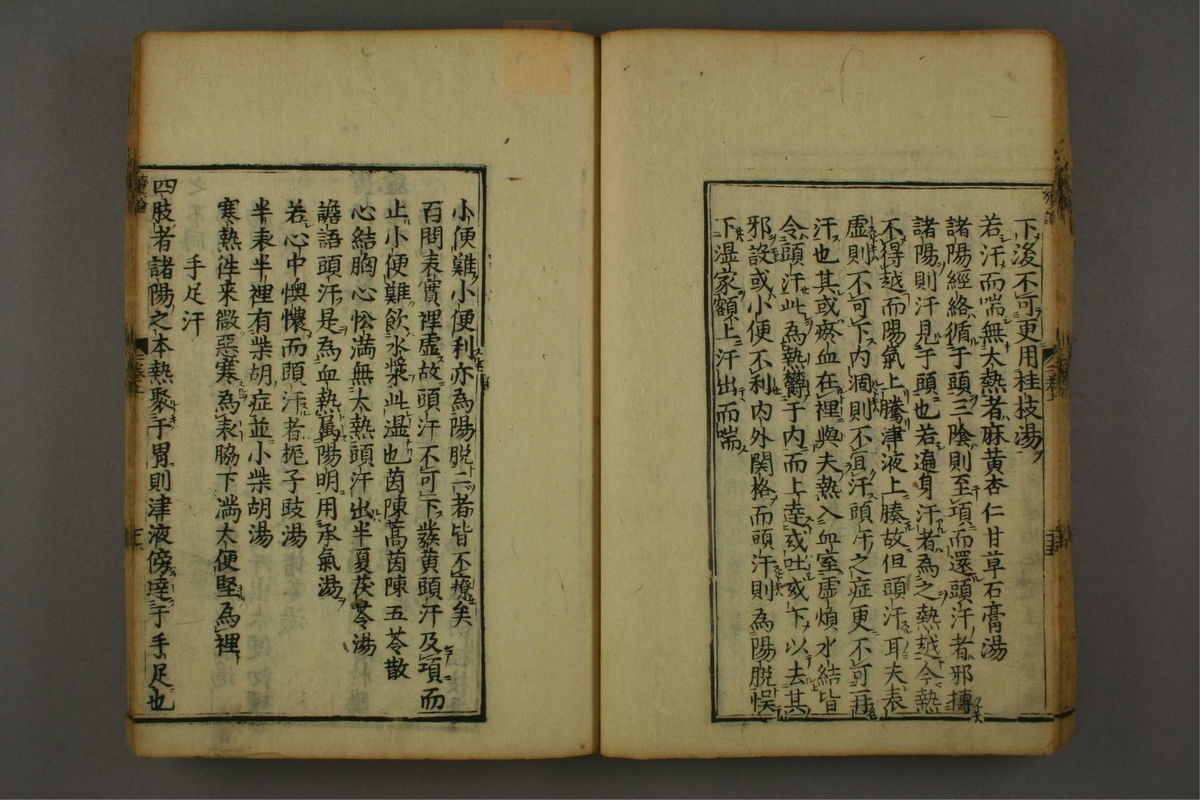 下後不可更用桂枝湯
若汗而喘無大熱者麻黄杏仁甘草石膏湯
諸陽經絡循于頭三陰則至項而還頭汗者邪搏
諸陽則汗見于頭也若遍身汗者為之熱越今熱
不得越而陽氣上騰津液上腠故但頭汗耳夫表
虚則不可下内涸則不宜汗頭汗之症更不可再
汗也其或瘀血在裡與夫熱入血室虚煩水結皆
令頭汗此為熱欝于内而上達或吐或下以去其
邪設或小便不利内外関格而頭汗則為陽脱悞
下湿家額上汗出而喘
小便難小便利亦為陽脱二者皆不療矣
百問表實裡虚故頭汗不可下發黄頭汗及項而
止小便難飲水漿此湿也茵陳蒿茵陳五苓散
心結胸心忪満無大熱頭汗出半夏茯苓湯
譫語頭汗是為血熱属陽明用承氣湯
若心中懊憹而頭汗者梔子豉湯
半表半裡有柴胡症並小柴胡湯
寒熱徃来微惡寒為表脇下満大便堅為裡
手足汗
四肢者諸陽之本熱聚于胃則津液傍達于手足也